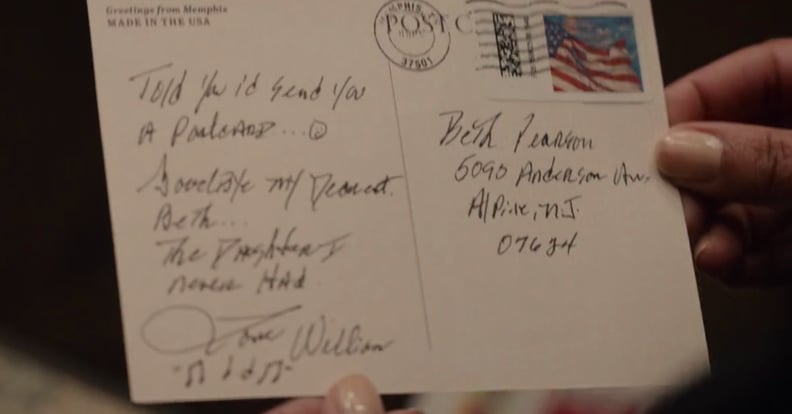 Greetings from Memphis
MADE IN THE USA
Told you i'd send you
A Postcard... ☺
Goodbye my Dearest
Beth...
The Daughter I
never HAd
Love William
♫ ♩ ♩ ♫
MEMPHIS
37501
POSTC
Beth Pearson
5090 Anderson Av.
Alpine, N.J.
07624